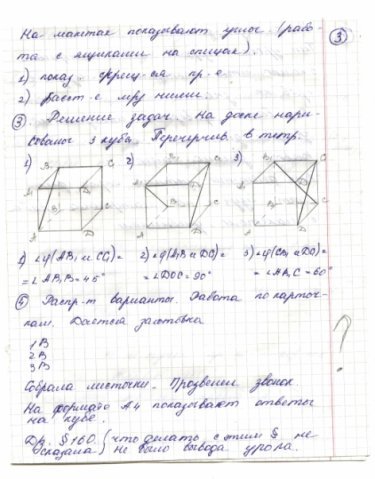 На макетах показывают углы (рабо-
та с ящиками на спицах).
3
1) показ. скрещ-ся пр-е
2) расст-е м/у ними.
③ Решение задач. На доске нари-
совано 3 куба. Перечертив. в тетр.
1) 2) 3)
1) ∠φ(AB₁ и CC₁)= 2) ∠φ(A₁B и DC)= 3) ∠φ(CB₁ и DC)=
= ∠AB₁B=45° = ∠DOC=90° = ∠AB₁C=60°
④ Распр-т варианты. Работа по карточ-
кам. Дается заготовка
1 В
2 В
3 В
?
Собрала листочки. Прозвенел звонок.
На формате А4 показывают ответы
на кубе.
Дз. § 160. (что делать с этим § не
сказала) не было вывода урока.